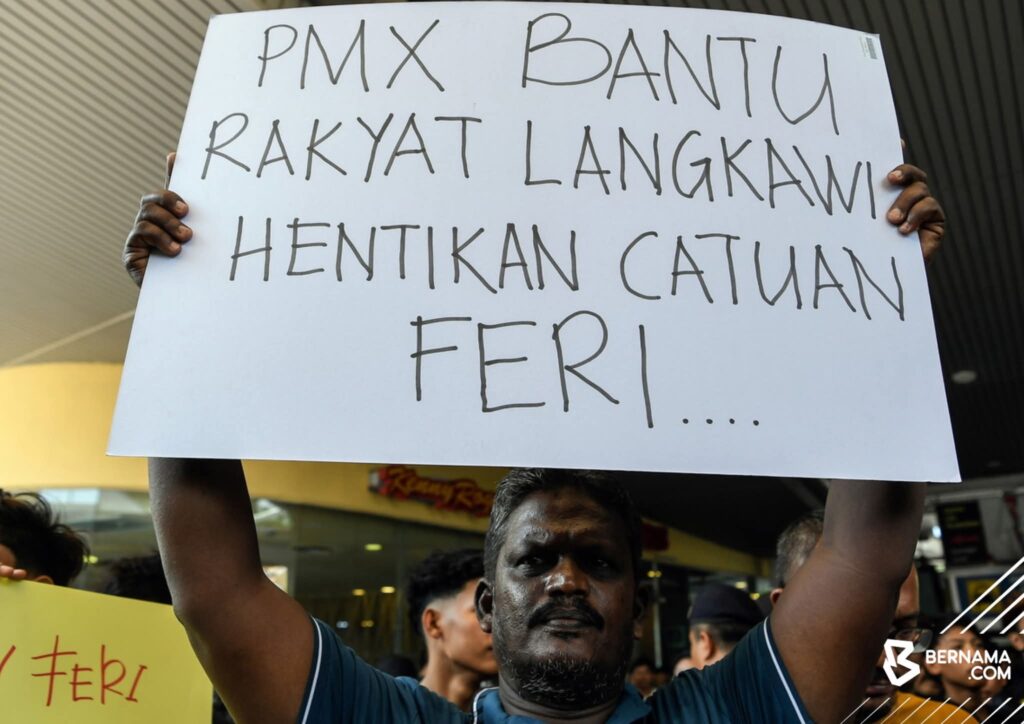 PMX BANTU
RAKYAT LANGKAWI
HENTIKAN CATUAN
FERI....
Kenny Ro
FERI
BERNAMA
.COM